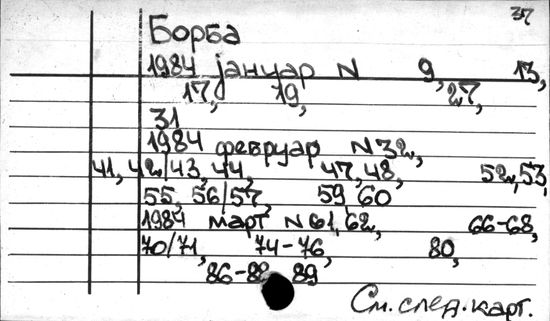 37
Борба
1984 јануар N 9, 13,
17, 19, 27,
31
1984 февруар N 32,
41, 42/43, 44, 47, 48, 52, 53,
55, 56/57, 59, 60
1984 март N 61, 62, 66-68,
70/71, 74-76, 80,
86-88, 89
См. след. карт.